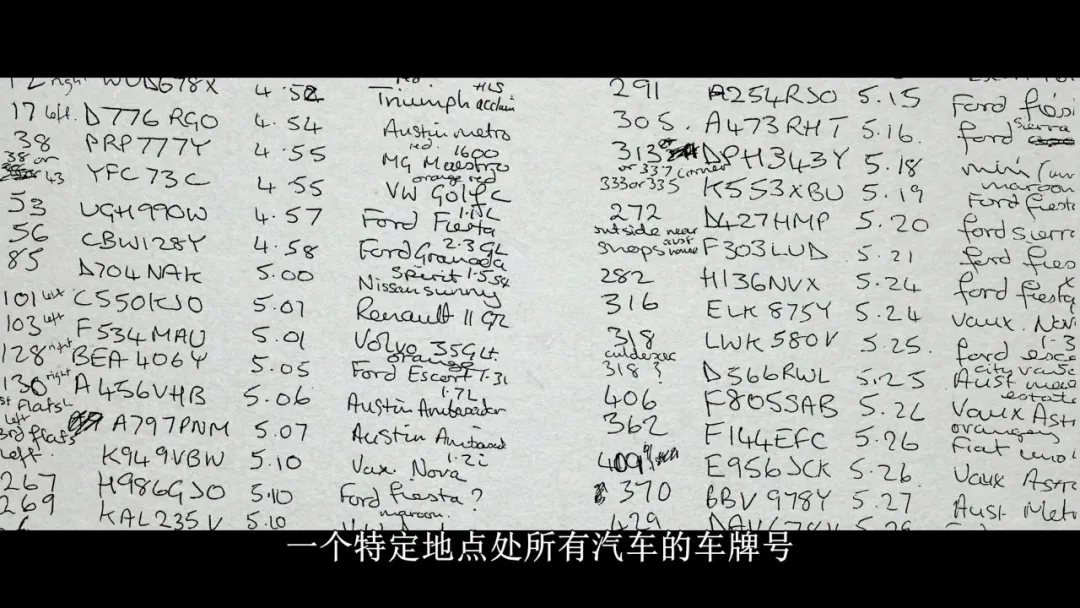 right WUD 678X 4.52 Triumph acclaim HLS
17 left. D776 RGO 4.54 Austin metro
38 PRP777Y 4.55 red. 1600 MG Maestro
38 or 43 YFC 73C 4.55 orange red VW Golf C
53 UGH 990W 4.57 Ford Fiesta
56 CBW128Y 4.58 Ford Granada 2.3 GL
85 D704 NAK 5.00 Nissan sunny
101 left C550KJO 5.01 Renault 11
103 left F534 MAU 5.01 Volvo
128 right BEA 406Y 5.05 orange Ford Escort 1.31
130 right A456VHB 5.06 Austin Ambassador 1.7L
flats left A797PNM 5.07 Austin
3rd flats left. K949VBW 5.10 Vax. Nova 1.2i
267 H986GJO 5.10 Ford fiesta ?
269 KAL 235V 5.10 maroon.
291 A254RJO 5.15 Ford
305. A473RHT 5.16. ford sierra
313 or 337 corner DPH343Y 5.18 mini
333 or 335 K553XBU 5.19 maroon Ford fiesta
272 D427HMP 5.20 ford sierra
outside near shops F303LUD 5.21 ford
282 H136NVX 5.24 ford fiesta
316 ELK 875Y 5.24 Vaux. Nova
318 culdesac LWK 580V 5.25.
318 ? D566RWL 5.25 Aust
406 F805SAB 5.26 estate Vaux Astra
362 F144EFC 5.26 Fiat uno
409 E956JCK 5.26 Vaux Astra
370 BBV 978Y 5.27 Aust Metro
429
一个特定地点处所有汽车的车牌号